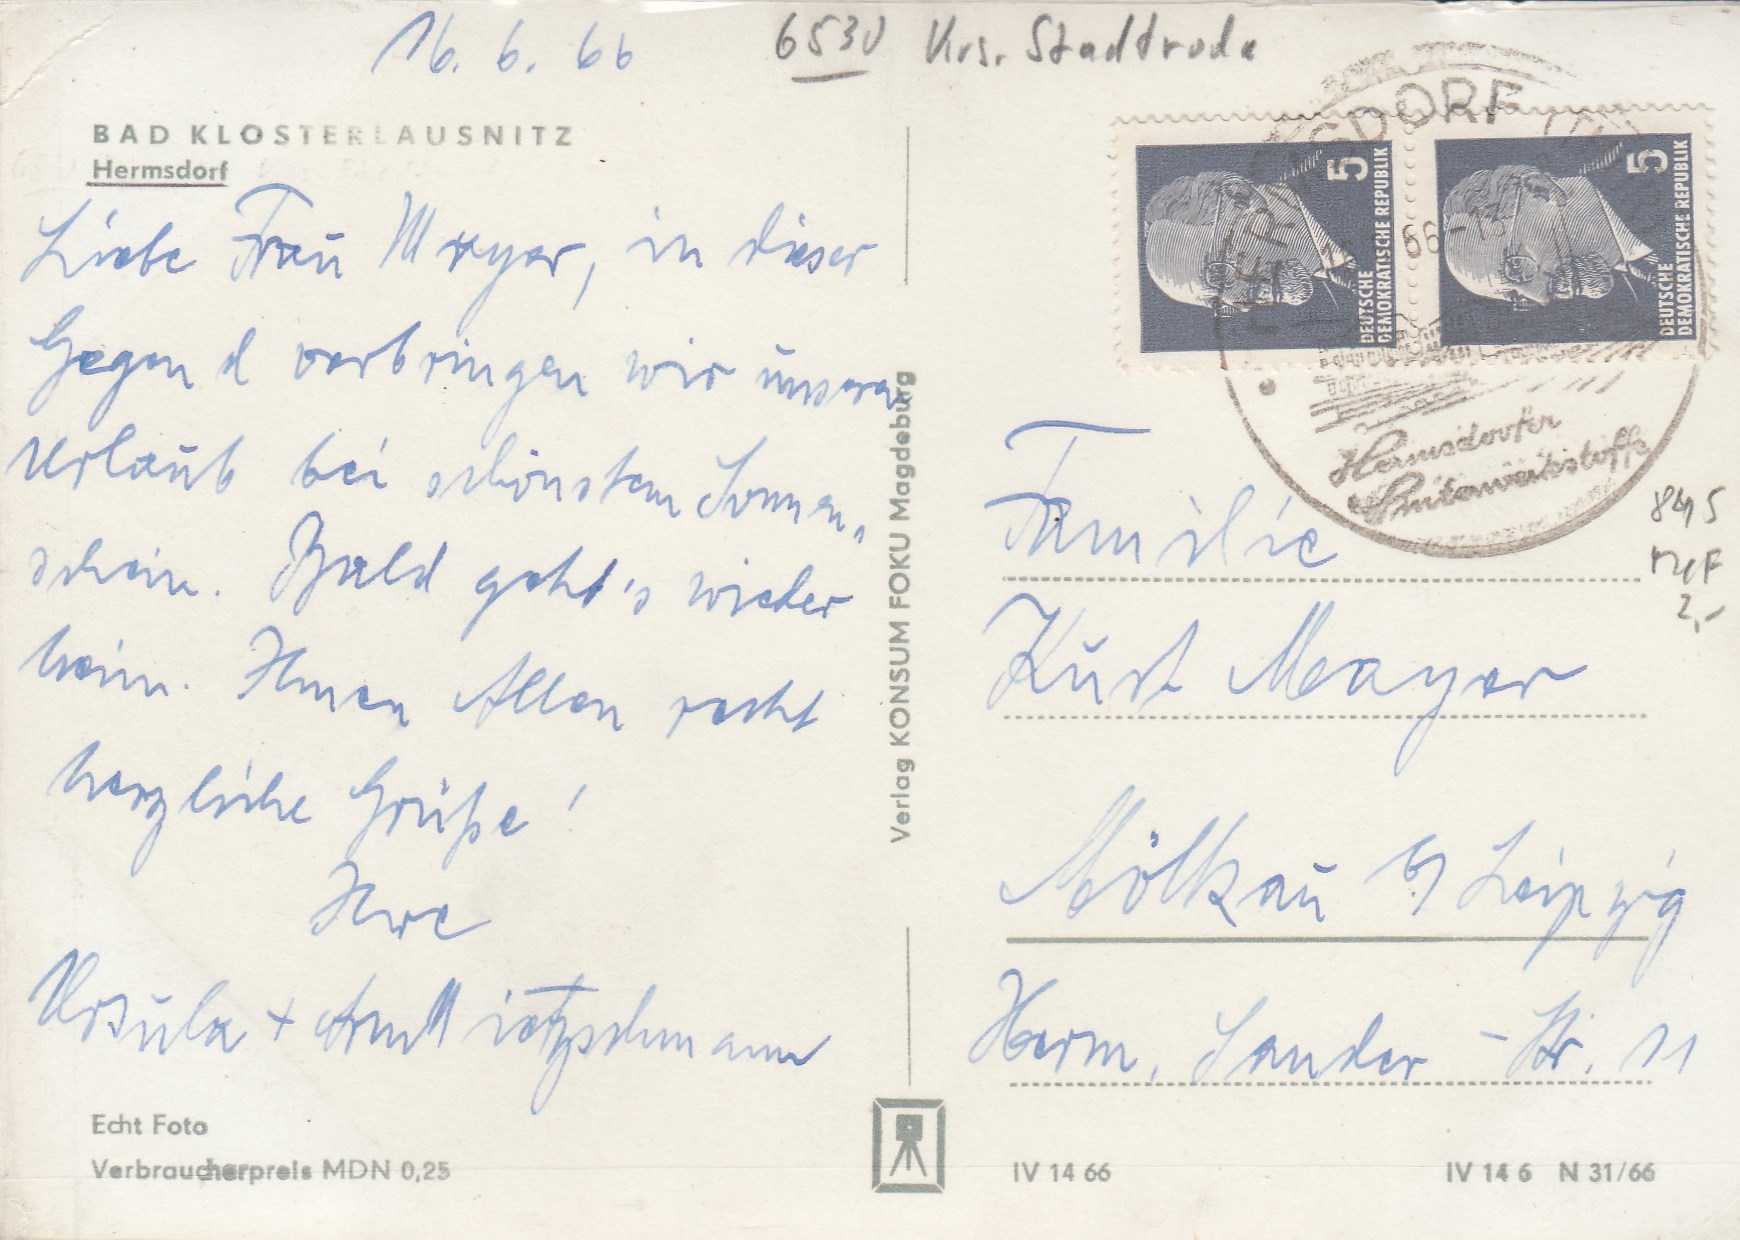 16. 6. 66
6530 Krs. Stadtroda
BAD KLOSTERLAUSNITZ
Hermsdorf
Liebe Frau Mayer, in dieser
Gegend verbringen wir unseren
Urlaub bei schönstem Sonnen-
schein. Bald geht's wieder
heim. Ihnen Allen recht
herzliche Grüße!
Ihre
Ursula + Arndt
Echt Foto
Verbraucherpreis MDN 0,25
Verlag KONSUM FOKU Magdeburg
5
DEUTSCHE
DEMOKRATISCHE REPUBLIK
5
DEUTSCHE
DEMOKRATISCHE REPUBLIK
HERMSDORF
66-13
Hermsdorfer
Sinterwerkstoffe
Familie
Kurt Mayer
Mölkau b/ Leipzig
Herm. Sander-Str. 11
2,-
IV 14 66
IV 14 6 N 31/66